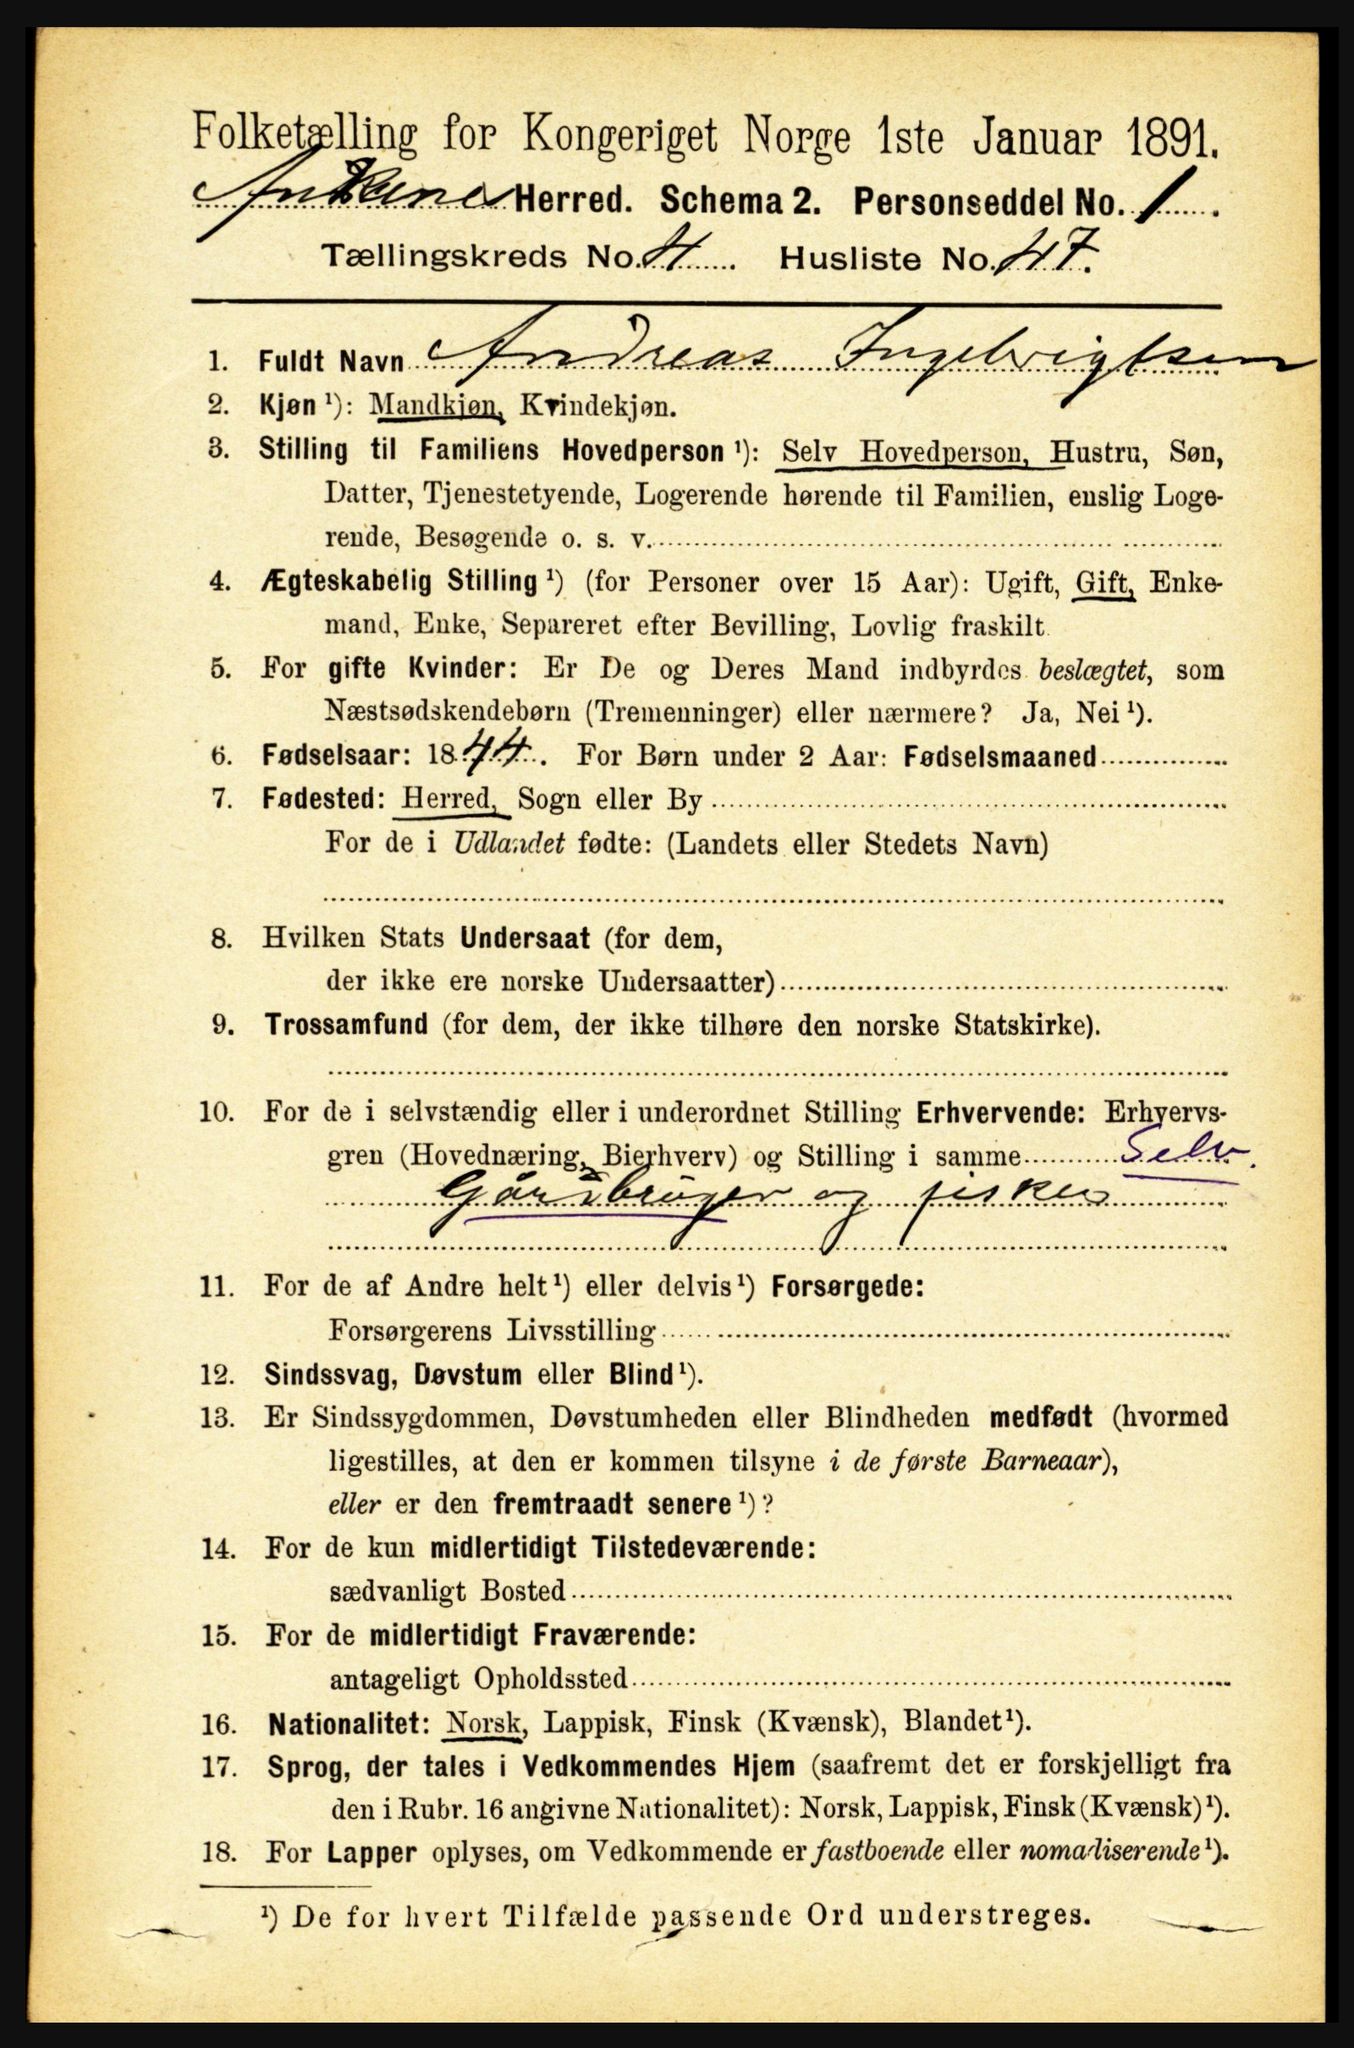 Folketælling for Kongeriget Norge 1ste Januar 1891.
Ankenes Herred. Schema 2. Personseddel No. 1
Tællingskreds No. 4 Husliste No. 47.
1. Fuldt Navn Andreas Ingebrigtsen
2. Kjøn ¹): Mandkjøn, Kvindekjøn.
3. Stilling til Familiens Hovedperson ¹): Selv Hovedperson, Hustru, Søn,
Datter, Tjenestetyende, Logerende hørende til Familien, enslig Loge-
rende, Besøgende o. s. v.
4. Ægteskabelig Stilling ¹) (for Personer over 15 Aar): Ugift, Gift, Enke-
mand, Enke, Separeret efter Bevilling, Lovlig fraskilt
5. For gifte Kvinder: Er De og Deres Mand indbyrdes beslægtet, som
Næstsødskendebørn (Tremenninger) eller nærmere? Ja, Nei ¹).
6. Fødselsaar: 1844. For Børn under 2 Aar: Fødselsmaaned
7. Fødested: Herred, Sogn eller By
For de i Udlandet fødte: (Landets eller Stedets Navn)
8. Hvilken Stats Undersaat (for dem,
der ikke ere norske Undersaatter)
9. Trossamfund (for dem, der ikke tilhøre den norske Statskirke).
10. For de i selvstændig eller i underordnet Stilling Erhvervende: Erhvervs-
gren (Hovednæring, Bierhverv) og Stilling i samme Selv.
Gårdbruger og fisker
11. For de af Andre helt ¹) eller delvis ¹) Forsørgede:
Forsørgerens Livsstilling
12. Sindssvag, Døvstum eller Blind ¹).
13. Er Sindssygdommen, Døvstumheden eller Blindheden medfødt (hvormed
ligestilles, at den er kommen tilsyne i de første Barneaar),
eller er den fremtraadt senere ¹)?
14. For de kun midlertidigt Tilstedeværende:
sædvanligt Bosted
15. For de midlertidigt Fraværende:
antageligt Opholdssted
16. Nationalitet: Norsk, Lappisk, Finsk (Kvænsk), Blandet ¹).
17. Sprog, der tales i Vedkommendes Hjem (saafremt det er forskjelligt fra
den i Rubr. 16 angivne Nationalitet): Norsk, Lappisk, Finsk (Kvænsk) ¹).
18. For Lapper oplyses, om Vedkommende er fastboende eller nomadiserende ¹).
¹) De for hvert Tilfælde passende Ord understreges.